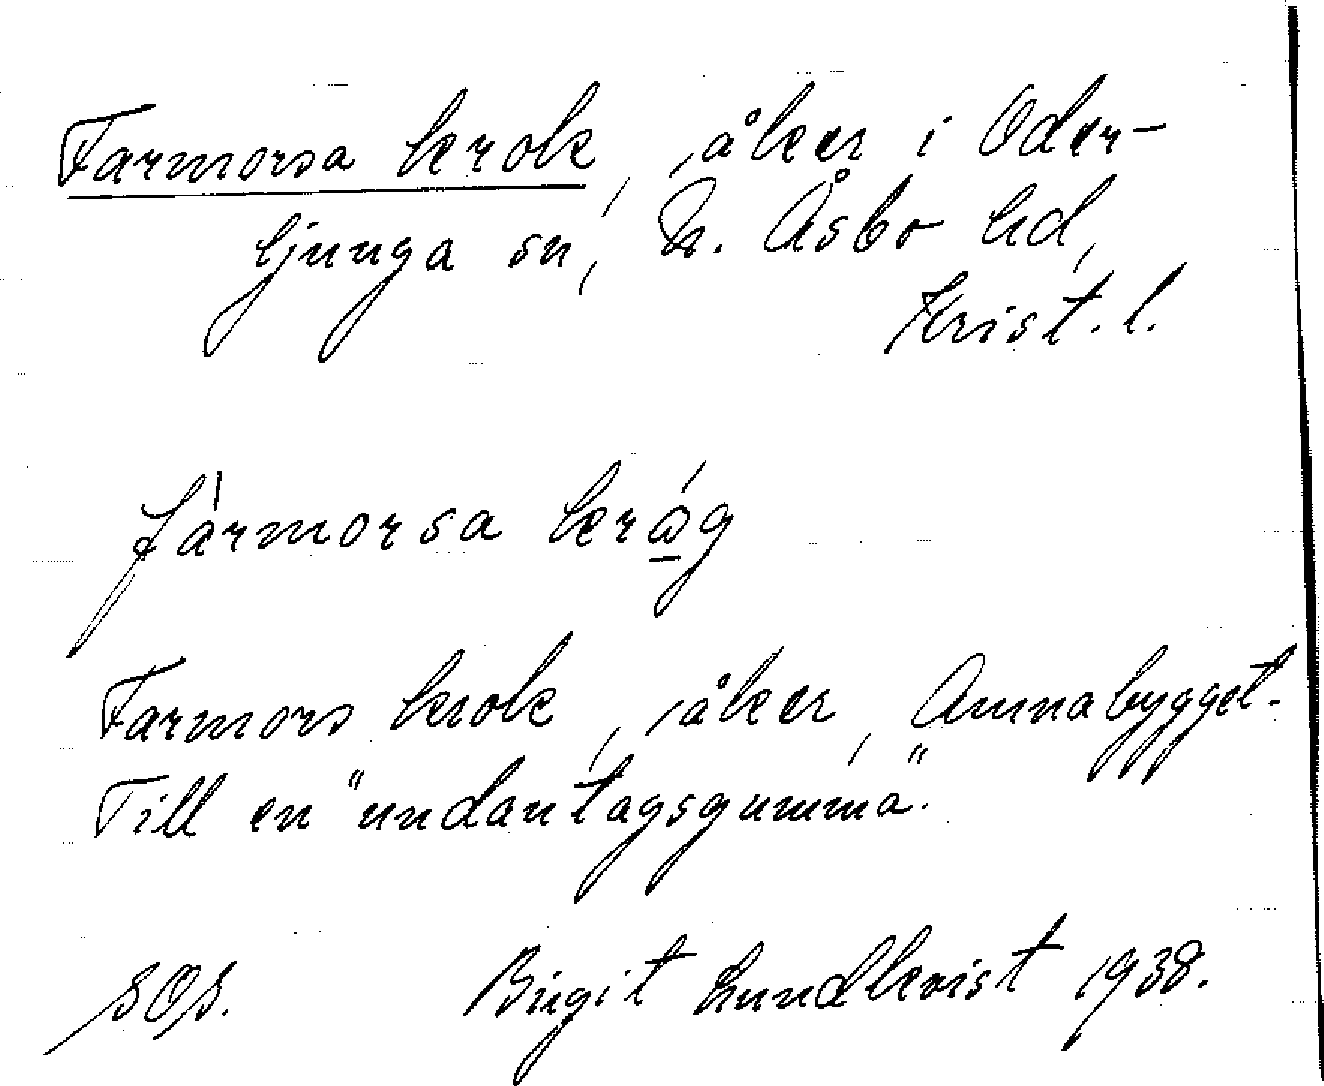 Farmorsa krok, åker i Oder-
ljunga sn, N. Åsbo hd,
Krist. l.
fàrmorsa krǻg
Farmors krok, åker, Annabygget.
Till en "undantagsgumma".
SOS. Birgit Lundkvist 1938.